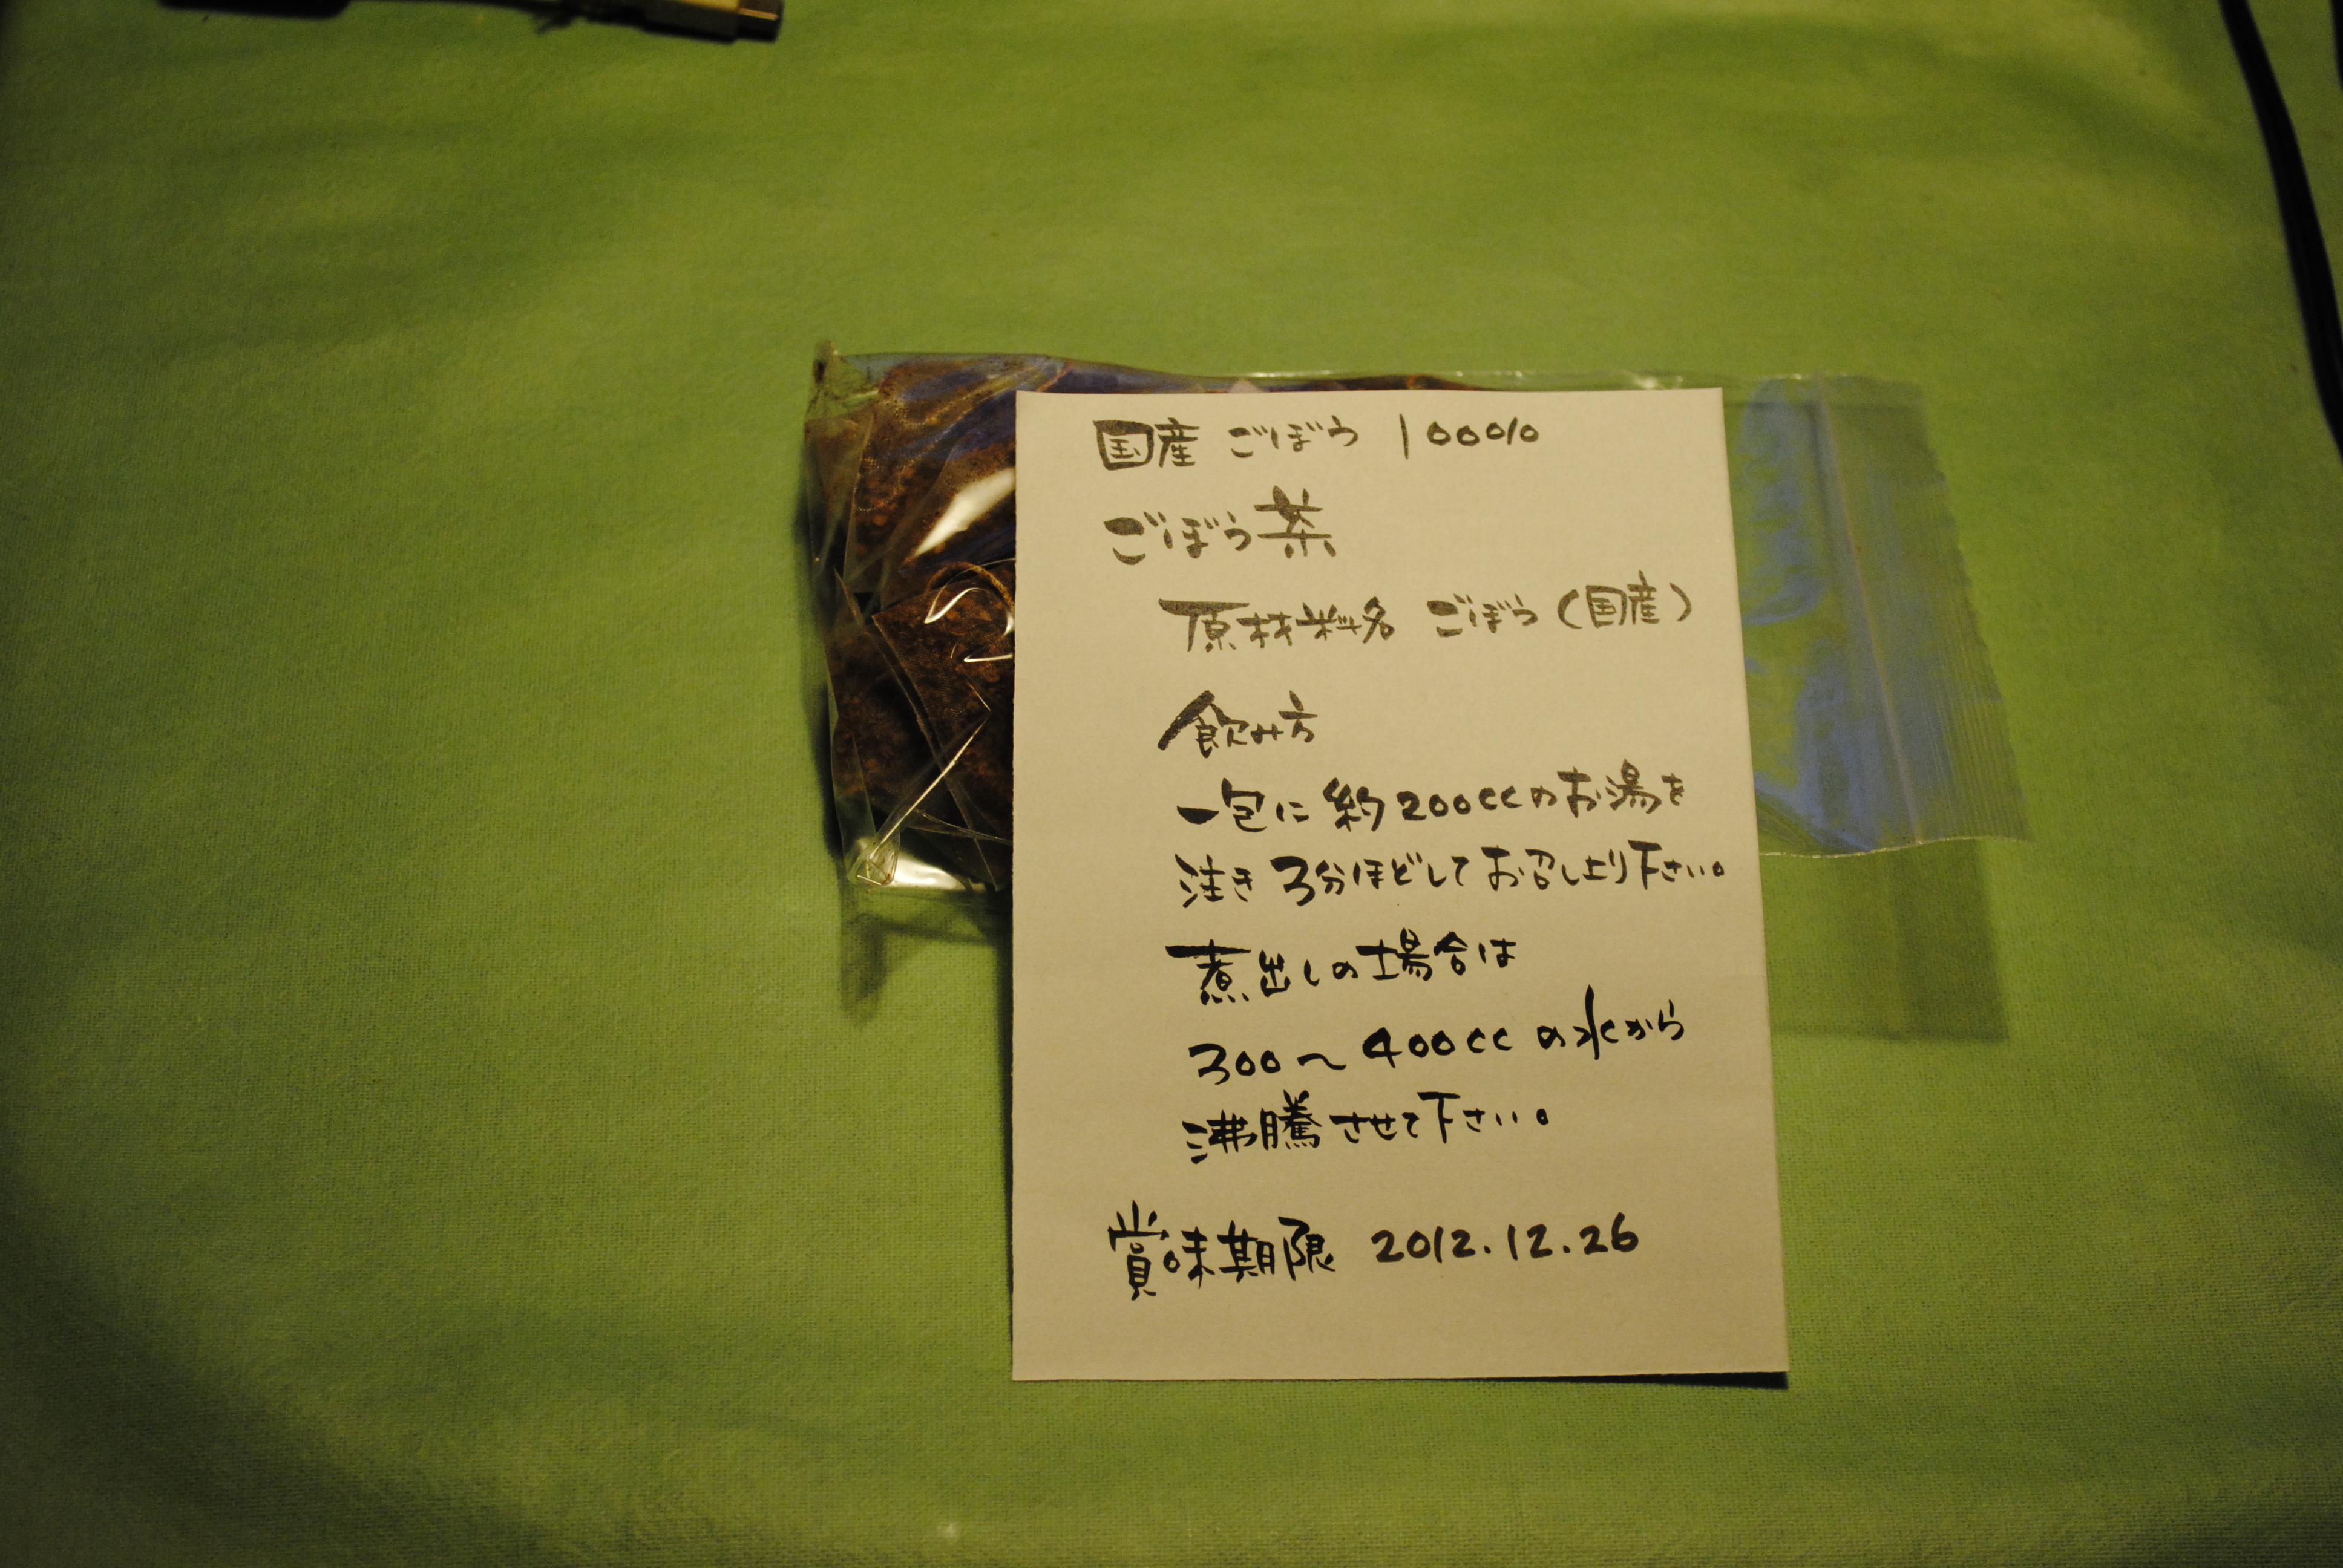 国産 ごぼう 100%
ごぼう茶
原材料名 ごぼう(国産)
飲み方
一包に 約200ccのお湯を
注き 3分ほどして お召し上り下さい。
煮出しの場合は
300〜400ccの水から
沸騰させて下さい。
賞味期限 2012.12.26